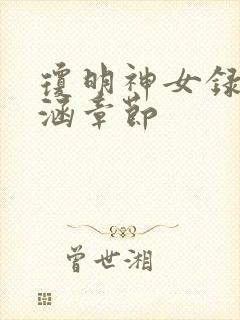 瓊明神女録
涵章節
曾世湘